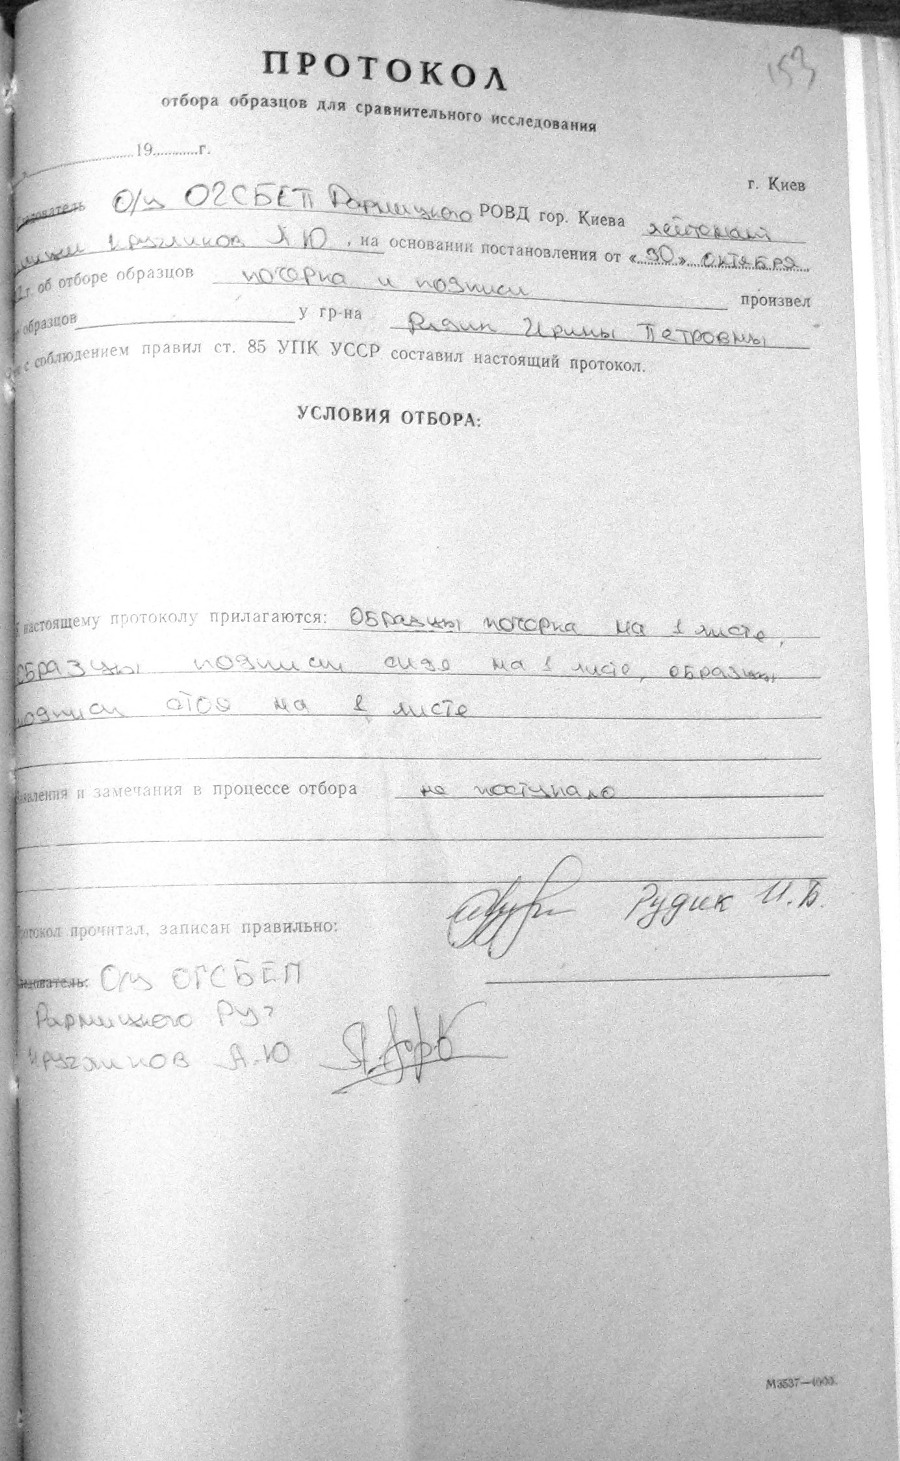 153
ПРОТОКОЛ
отбора образцов для сравнительного исследования
19 г.
г. Киев
О/у ОГСБЕП РОВД гор. Киева лейтенант
Кругликов А Ю, на основании постановления от «30» октября
г. об отборе образцов почерка и подписи произвел
образцов у гр-на Ирины Петровны
с соблюдением правил ст. 85 УПК УССР составил настоящий протокол.
УСЛОВИЯ ОТБОРА:
настоящему протоколу прилагаются: образцы почерка на 1 листе,
образцы подписи на 1 листе, образцы
подписи на листе
и замечания в процессе отбора не поступало
Рудик И.
прочитал, записан правильно:
О/у ОГСБЕП
Кругликов А.Ю